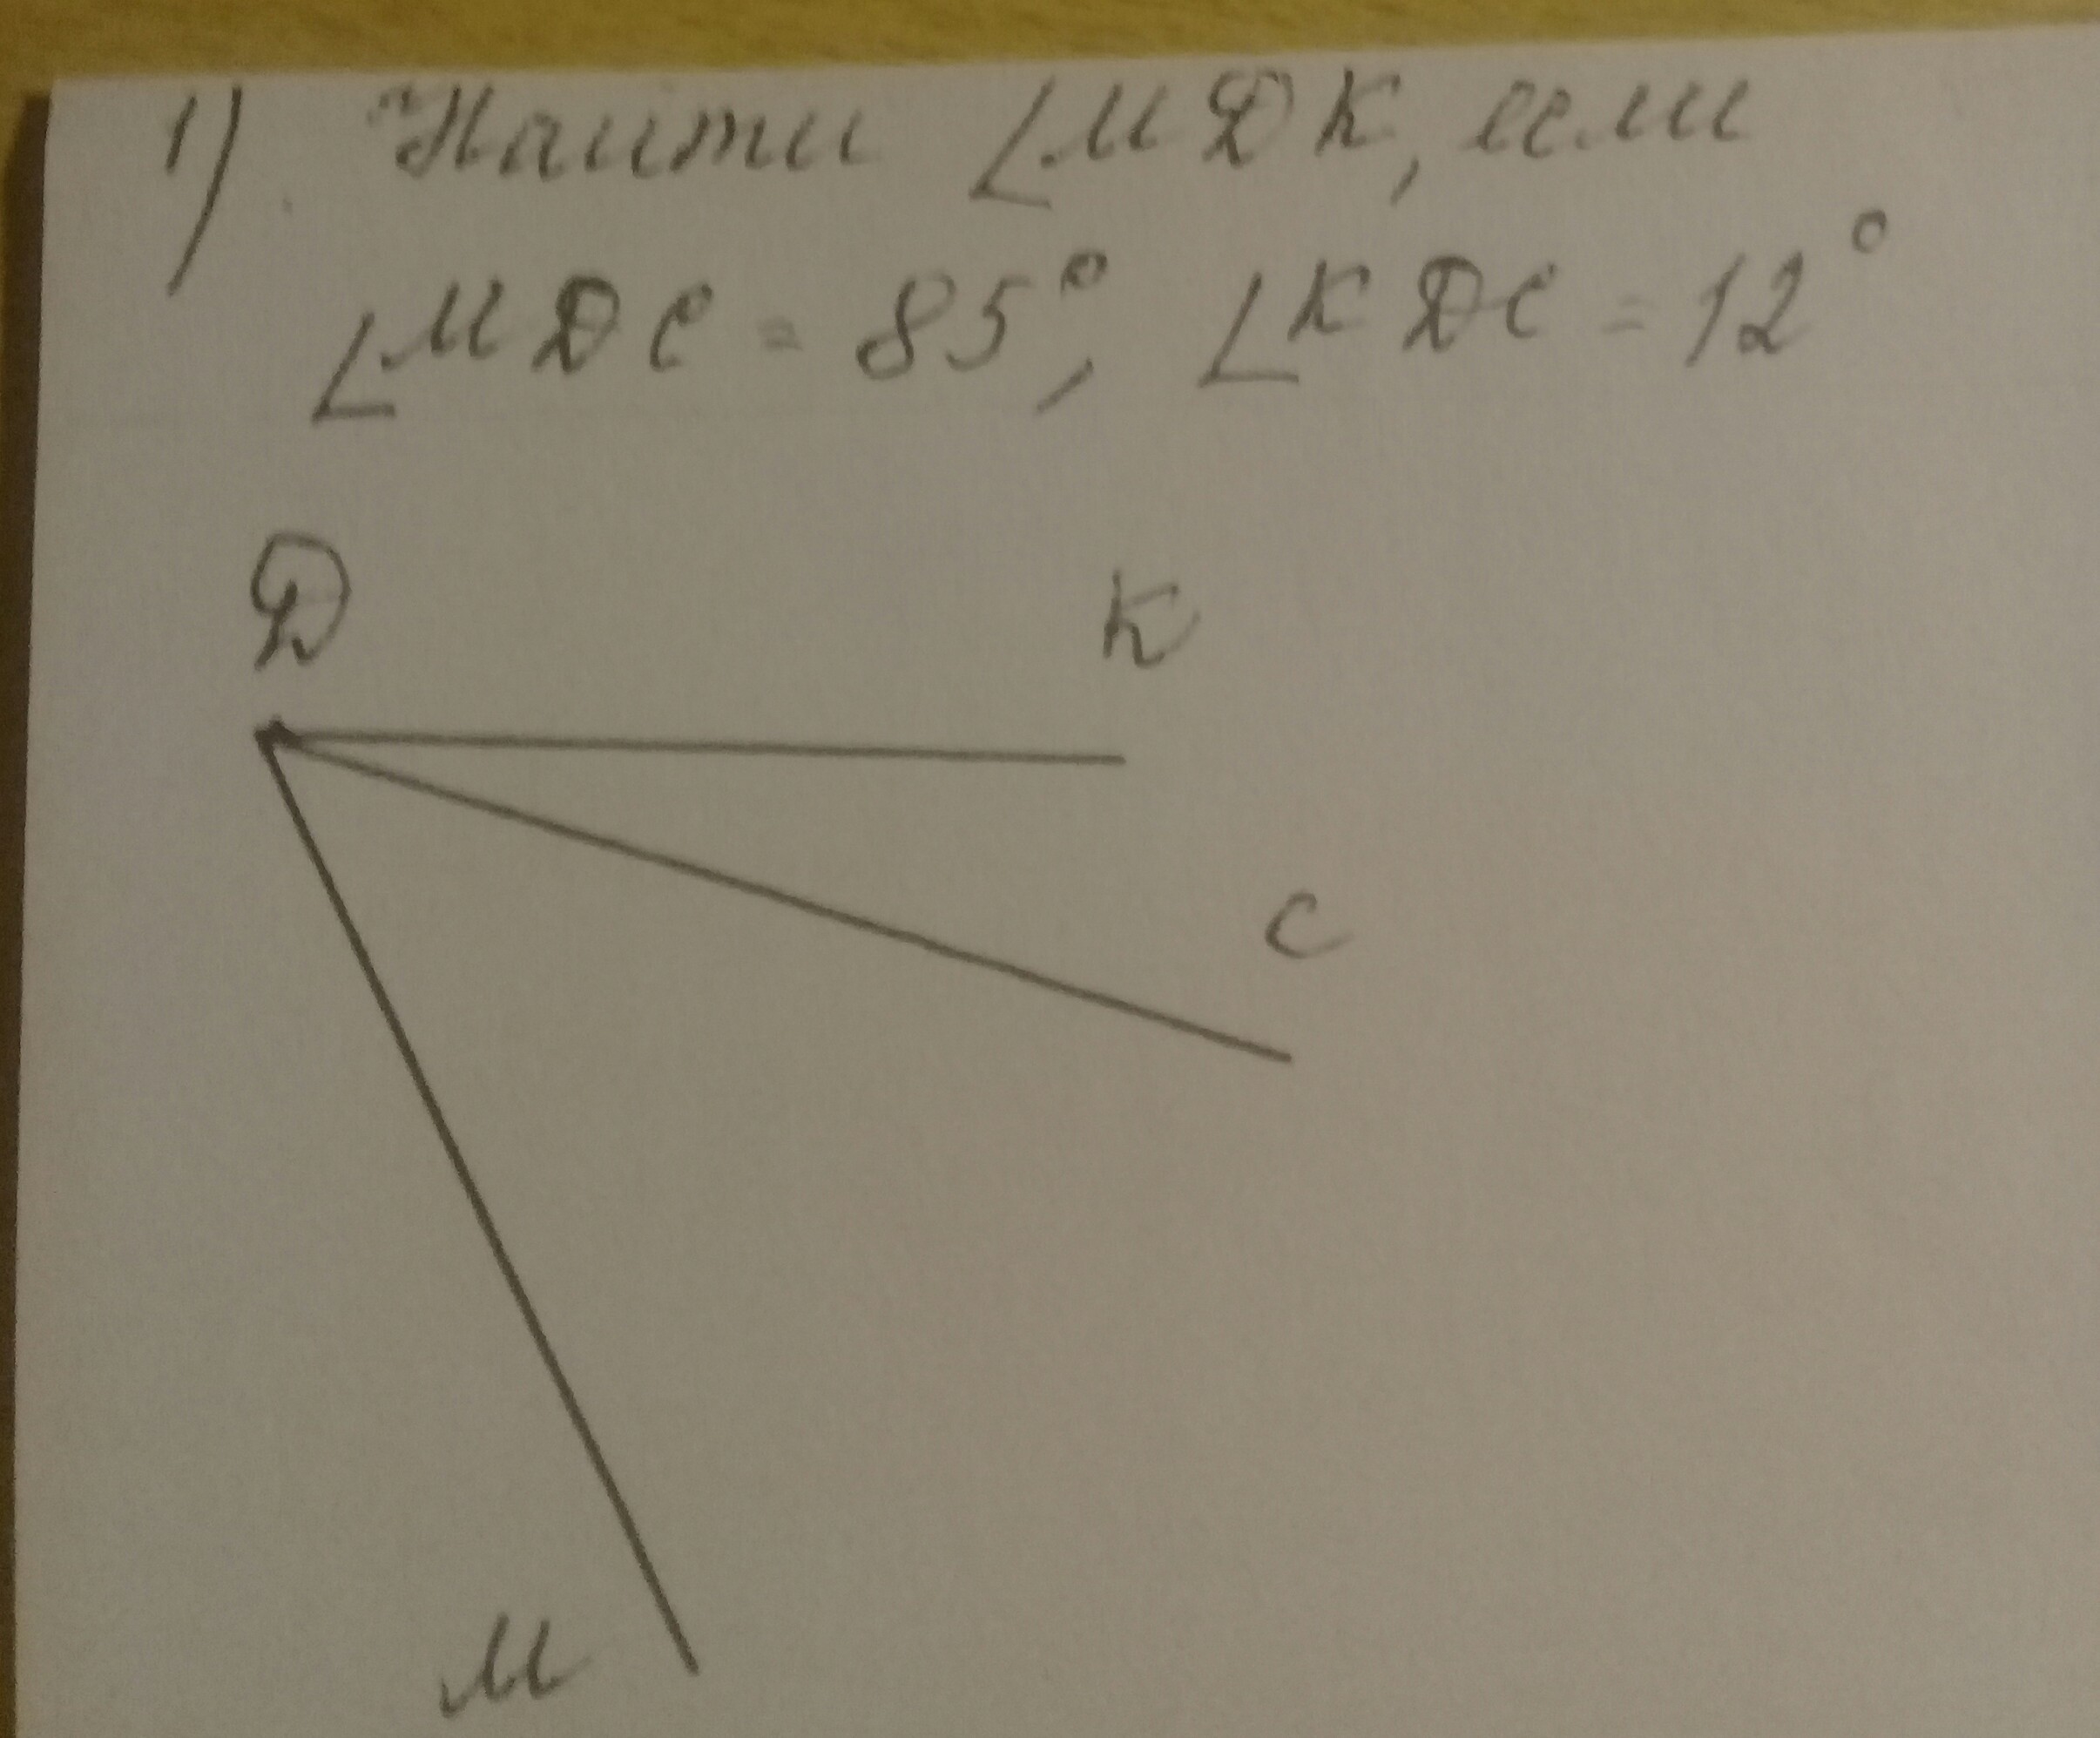 1). Найти ∠МДК, если
∠МДС = 85°, ∠КДС = 12°
Д К
С
М